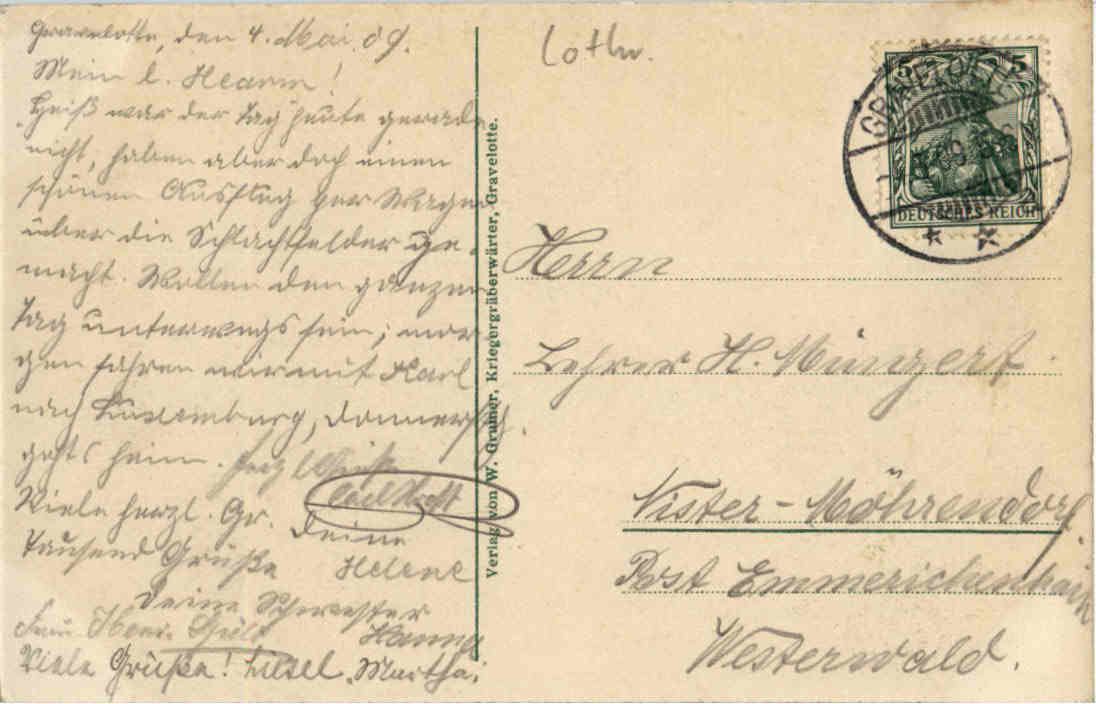 Gravelotte, den 4. Mai 09.
Mein l. Hearm!
Heiß war der Tag heute gerade
nicht, haben aber doch einen
schönen Ausflug per Wagen
über die Schlachtfelder ge-
macht. Wollen den ganzen
Tag unterwegs sein; mor-
gen fahren wir mit Karl
nach Luxemburg, Donnerstg.
gehts heim.
Viele herzl. Gr. Deine
Tausend Grüße Helene
Deine Schwester
Hanna
Frau
Viele Grüße! Liesel. Martha.
Verlag von W. Grumer, Kriegergräberwärter, Gravelotte.
Lothr.
5 5
GRAVELOTTE
DEUTSCHES REICH
Herrn
Lehrer H. Müngert.
Nister-Möhrendorf
Post Emmerichenhain
Westerwald.